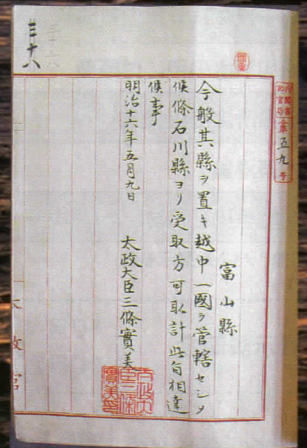 五九
富山縣
今般其縣ヲ置キ越中一國ヲ管轄セシメ
候條石川縣ヨリ受取方可取計此旨相達
候事
明治十六年五月九日
太政大臣三條實美
太政官
三十八